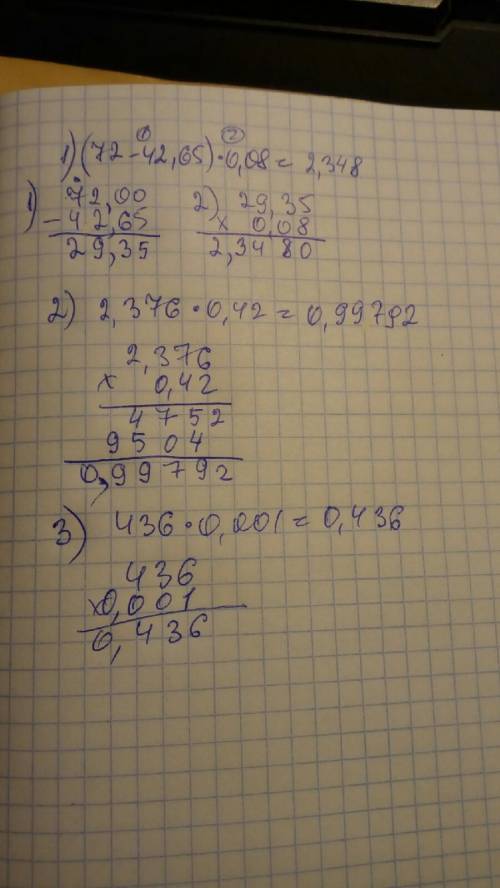 ① ②
1) (72 - 42,65) · 0,08 = 2,348
1) 72,00 2) 29,35
- 42,65 x 0,08
29,35 2,3480
2) 2,376 · 0,42 = 0,99792
2,376
x 0,42
4752
9504
0,99792
3) 436 · 0,001 = 0,436
436
x0,001
0,436